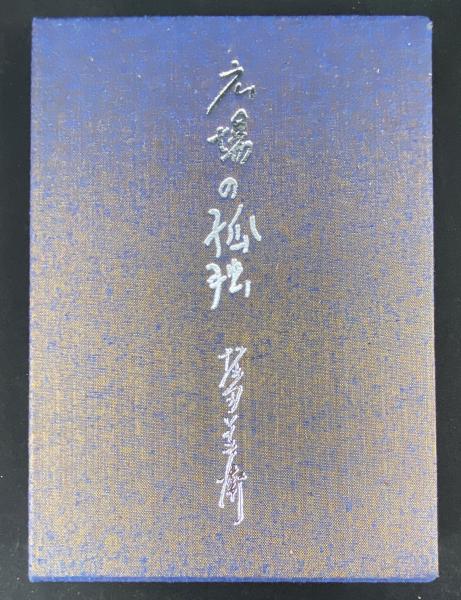 広場の孤独
堀田善衛